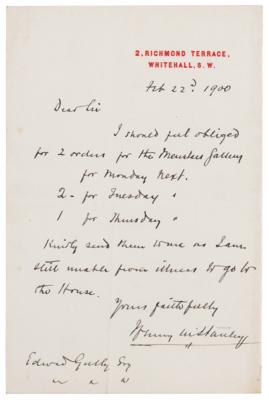 2, RICHMOND TERRACE,
WHITEHALL, S. W.
Feb 22d. 1900
Dear Sir
I should feel obliged
for 2 orders for the Members Gallery
for Monday next.
2 - for Tuesday "
1 for Thursday "
Kindly send them to me as I am
still unable from illness to go to
the House.
Yours faithfully
Henry M Stanley
Edward Gully Esq